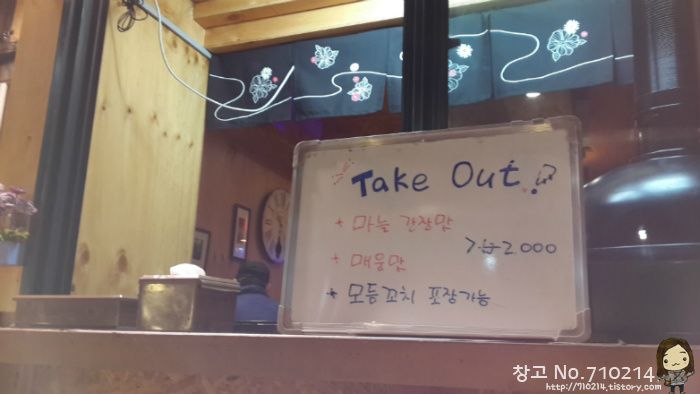 Take Out
* 마늘 간장맛
* 매운맛
>₩2000
* 모듬꼬치 포장가능
창고 No.710214
http://710214.tistory.com/